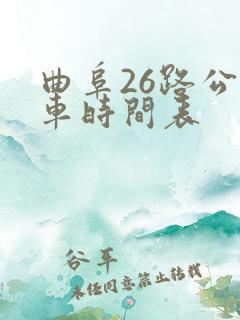 曲阜26路公
車時間表
谷平
未經同意禁止轉載